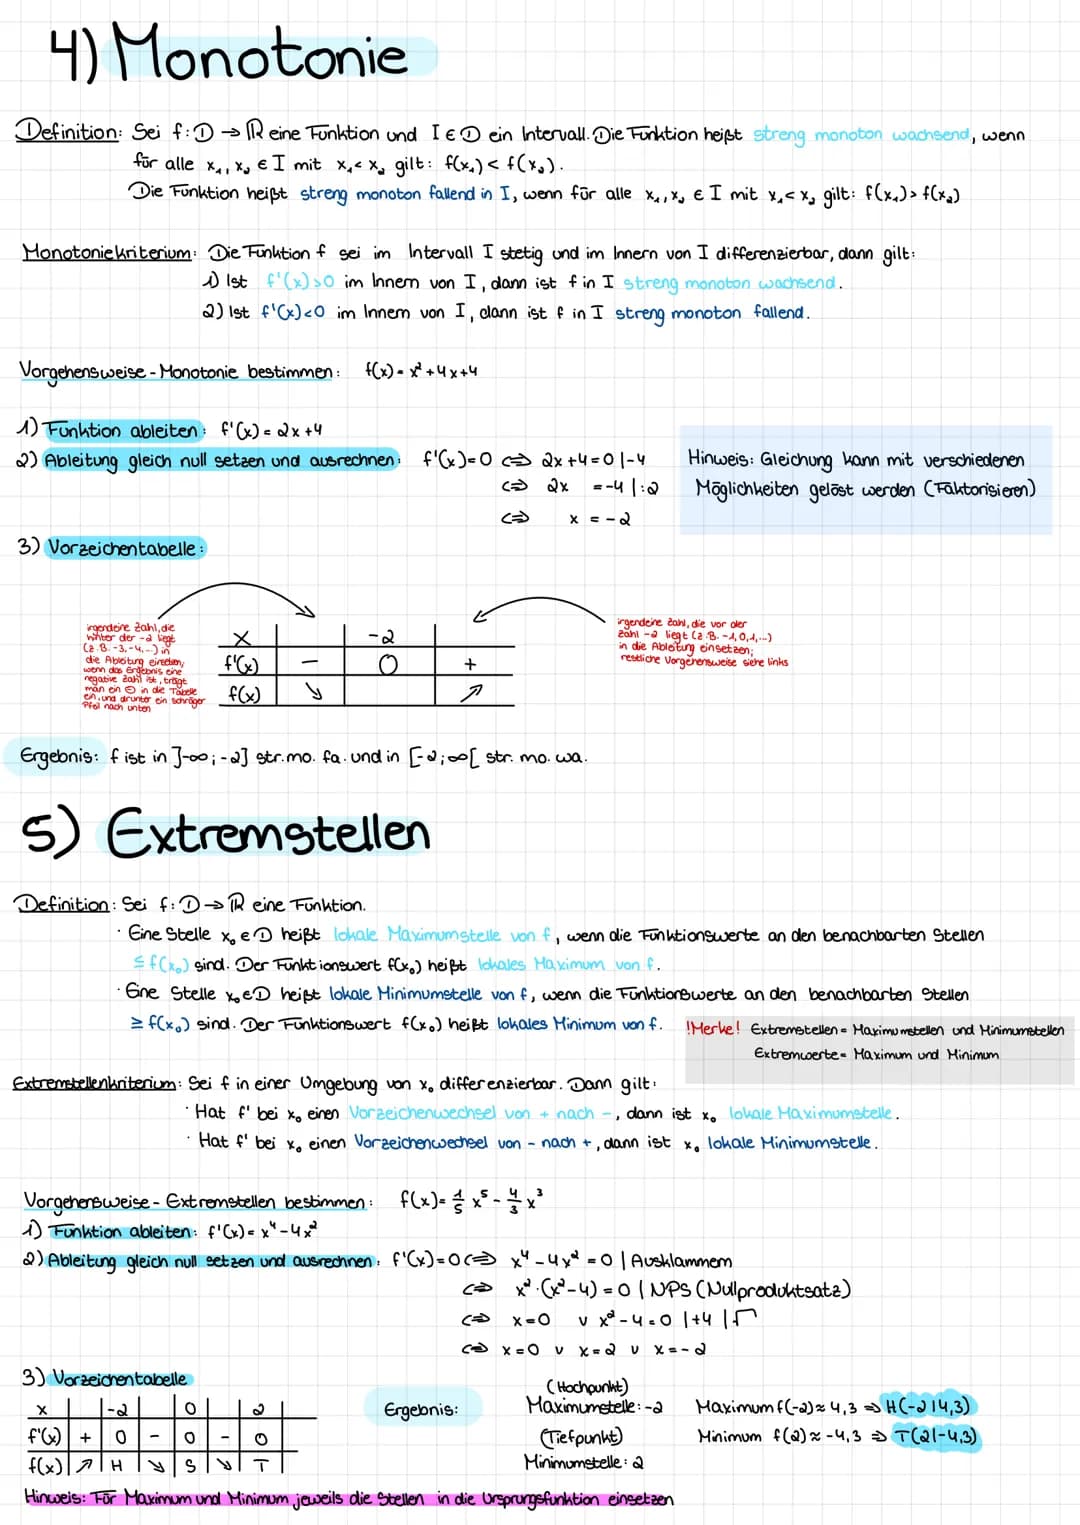 4) Monotonie
Definition: Sei f: D → ℝ eine Funktion und I ∈ D ein Intervall. Die Funktion heißt streng monoton wachsend, wenn
für alle x₁, x₂ ∈ I mit x₁ < x₂ gilt: f(x₁) < f(x₂).
Die Funktion heißt streng monoton fallend in I, wenn für alle x₁, x₂ ∈ I mit x₁ < x₂ gilt: f(x₁) > f(x₂)
Monotoniekriterium: Die Funktion f sei im Intervall I stetig und im Innern von I differenzierbar, dann gilt:
1) Ist f'(x)>0 im Innern von I, dann ist f in I streng monoton wachsend.
2) Ist f'(x)<0 im Innern von I, dann ist f in I streng monoton fallend.
Vorgehensweise - Monotonie bestimmen: f(x) = x² + 4x + 4
1) Funktion ableiten: f'(x) = 2x + 4
2) Ableitung gleich null setzen und ausrechnen: f'(x)=0 ⇔ 2x + 4 = 0 | -4
⇔ 2x = -4 | :2
⇔ x = -2
Hinweis: Gleichung kann mit verschiedenen
Möglichkeiten gelöst werden (Faktorisieren)
3) Vorzeichentabelle:
irgendeine Zahl, die
hinter der -2 liegt
(z.B. -3, -4, ...) in
die Ableitung einsetzen,
wenn das Ergebnis eine
negative Zahl ist, trägt
man ein ⊖ in die Tabelle
ein, und drunter ein schräger
Pfeil nach unten
x -2
f'(x) - 0 +
f(x) ↘ ↗
irgendeine Zahl, die vor der
Zahl -2 liegt (z.B. -1, 0, 1, ...)
in die Ableitung einsetzen;
restliche Vorgehensweise siehe links
Ergebnis: f ist in ]-∞; -2] str. mo. fa. und in [-2; ∞[ str. mo. wa.
5) Extremstellen
Definition: Sei f: D → ℝ eine Funktion.
· Eine Stelle x₀ ∈ D heißt lokale Maximumstelle von f, wenn die Funktionswerte an den benachbarten Stellen
≤ f(x₀) sind. Der Funktionswert f(x₀) heißt lokales Maximum von f.
· Eine Stelle x₀ ∈ D heißt lokale Minimumstelle von f, wenn die Funktionswerte an den benachbarten Stellen
≥ f(x₀) sind. Der Funktionswert f(x₀) heißt lokales Minimum von f.
!Merke! Extremstellen = Maximumstellen und Minimumstellen
Extremwerte = Maximum und Minimum
Extremstellenkriterium: Sei f in einer Umgebung von x₀ differenzierbar. Dann gilt:
· Hat f' bei x₀ einen Vorzeichenwechsel von + nach -, dann ist x₀ lokale Maximumstelle.
· Hat f' bei x₀ einen Vorzeichenwechsel von - nach +, dann ist x₀ lokale Minimumstelle.
Vorgehensweise - Extremstellen bestimmen: f(x) = 1/5 x⁵ - 4/3 x³
1) Funktion ableiten: f'(x) = x⁴ - 4x²
2) Ableitung gleich null setzen und ausrechnen: f'(x)=0 ⇔ x⁴ - 4x² = 0 | Ausklammern
⇔ x² · (x² - 4) = 0 | NPS (Nullproduktsatz)
⇔ x = 0 v x² - 4 = 0 | +4 | √
⇔ x = 0 v x = 2 v x = -2
3) Vorzeichentabelle
x -2 0 2
f'(x) + 0 - 0 - 0
f(x) ↗ H ↘ S ↘ T
Ergebnis:
(Hochpunkt)
Maximumstelle: -2 Maximum f(-2) ≈ 4,3 ⇒ H(-2|4,3)
(Tiefpunkt) Minimum f(2) ≈ -4,3 ⇒ T(2|-4,3)
Minimumstelle: 2
Hinweis: Für Maximum und Minimum jeweils die Stellen in die Ursprungsfunktion einsetzen